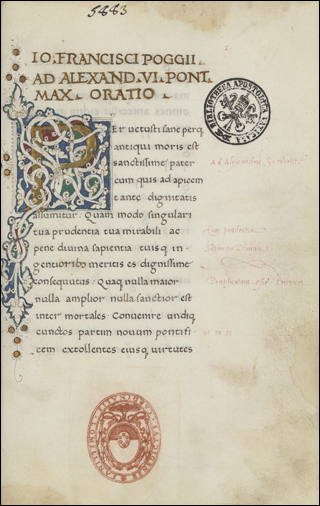 5883
IO. FRANCISCI POGGII
AD ALEXAND. VI. PONT.
MAX. ORATIO
Er uetusti sane perq.
antiqui moris est
sanctissime pater
cum quis ad apicem
tante dignitatis
assumitur. Quam modo singulari
tua prudentia tua mirabili ac
pene diuina sapientia tuisq in
gentioribus meritis es dignissime
consequutus. Quaq nulla maior
nulla amplior nulla sanctior est
inter mortales. Conuenire undiq
cunctos partim nouum pontifi
cem extollentes eiusq uirtutes
BIBLIOTHECA APOSTOLICA VATICANA